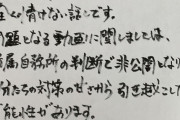 全く情けない話しです。
問題となる動画に関しましては、
所属事務所の判断で非公開となり
分たちの対策のせざから引き起こした
能性があります。